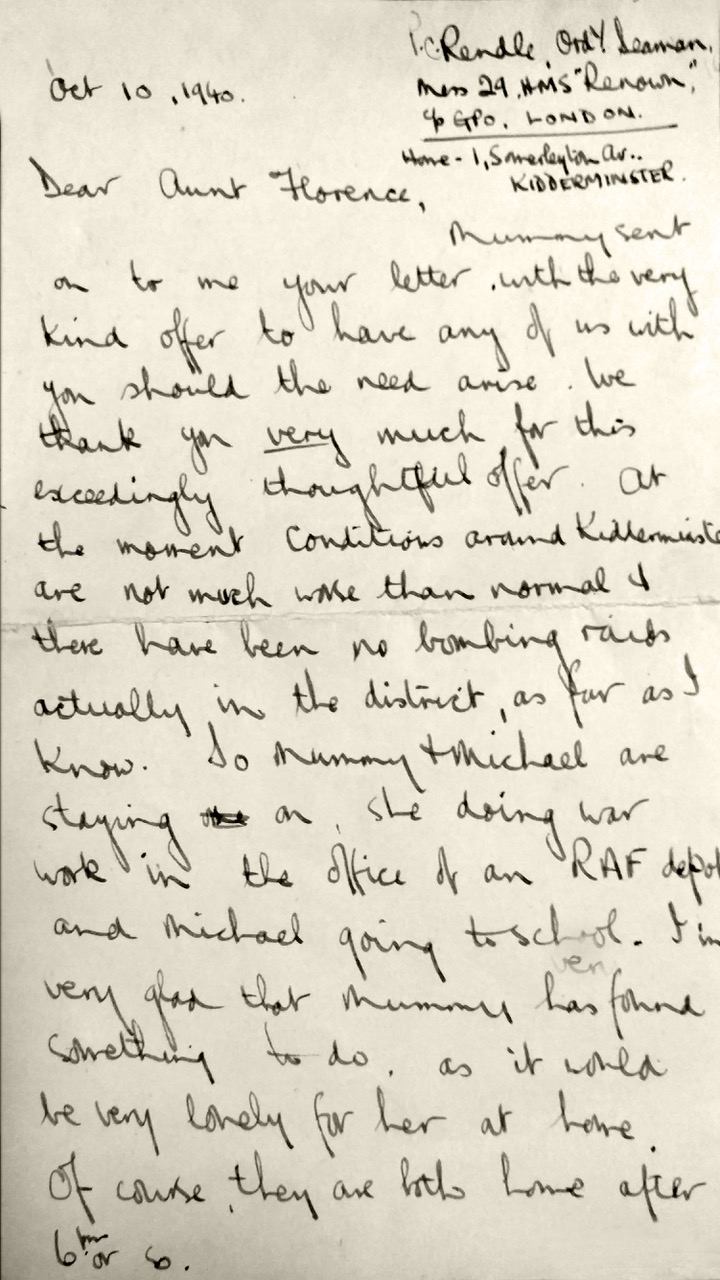 P.C. Rendle, Ordy Seaman,
Oct 10, 1940.
Mess 29, HMS "Renown",
c/o GPO, LONDON.
Home - 1, Somerleyton Av..
KIDDERMINSTER.
Dear Aunt Florence,
Mummy sent
on to me your letter, with the very
kind offer to have any of us with
you should the need arise. We
thank you very much for this
exceedingly thoughtful offer. At
the moment conditions around Kidderminste
are not much worse than normal &
there have been no bombing raids
actually in the district, as far as I
know. So Mummy & Michael are
staying on, she doing war
work in the office of an RAF depot
and Michael going to school. I'm
very glad that Mummy has found
something to do, as it would
be very lonely for her at home.
Of course, they are both home after
6pm or so.